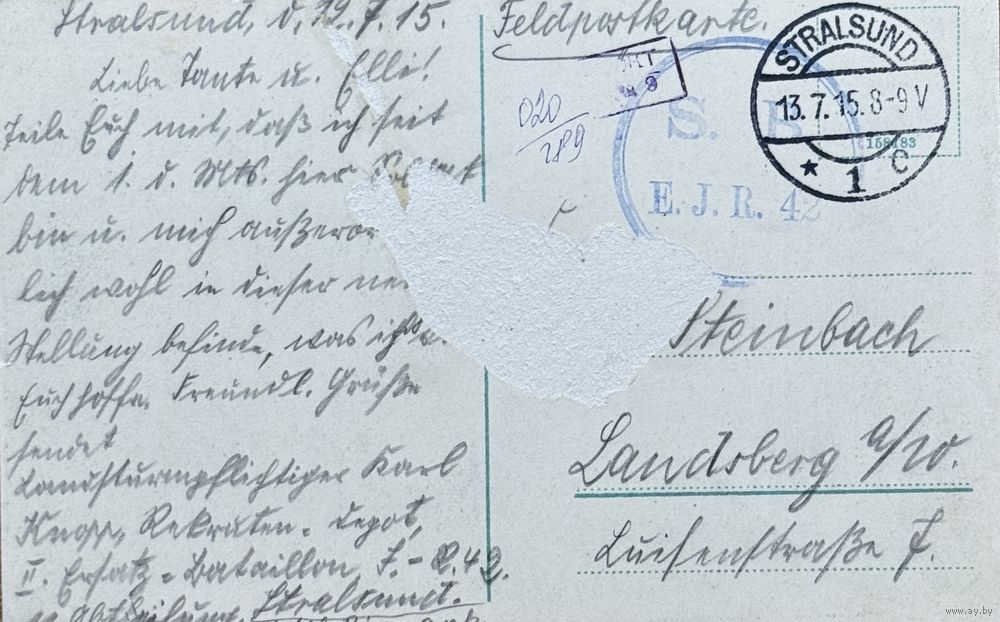 Stralsund, d. 12.7.15.
Liebe Tante u. Elli!
Teile Euch mit, daß ich seit
dem 1. d. Mts. hier
bin u. mich außeror
lich wohl in dieser
Stellung befinde, was ich
Euch hoffe. Freundl. Grüße
sendet
Landsturmpflichtiger Karl
Rekruten-Depot,
II. Ersatz-Bataillon J.-R. 42.
Abteilung, Stralsund.
Feldpostkarte.
020
289
S. B
E. J. R. 42
STRALSUND
13.7.15.8-9V
* 1 C
158183
Steinbach
Landsberg a/W.
Luisenstraße 7.
www.ay.by